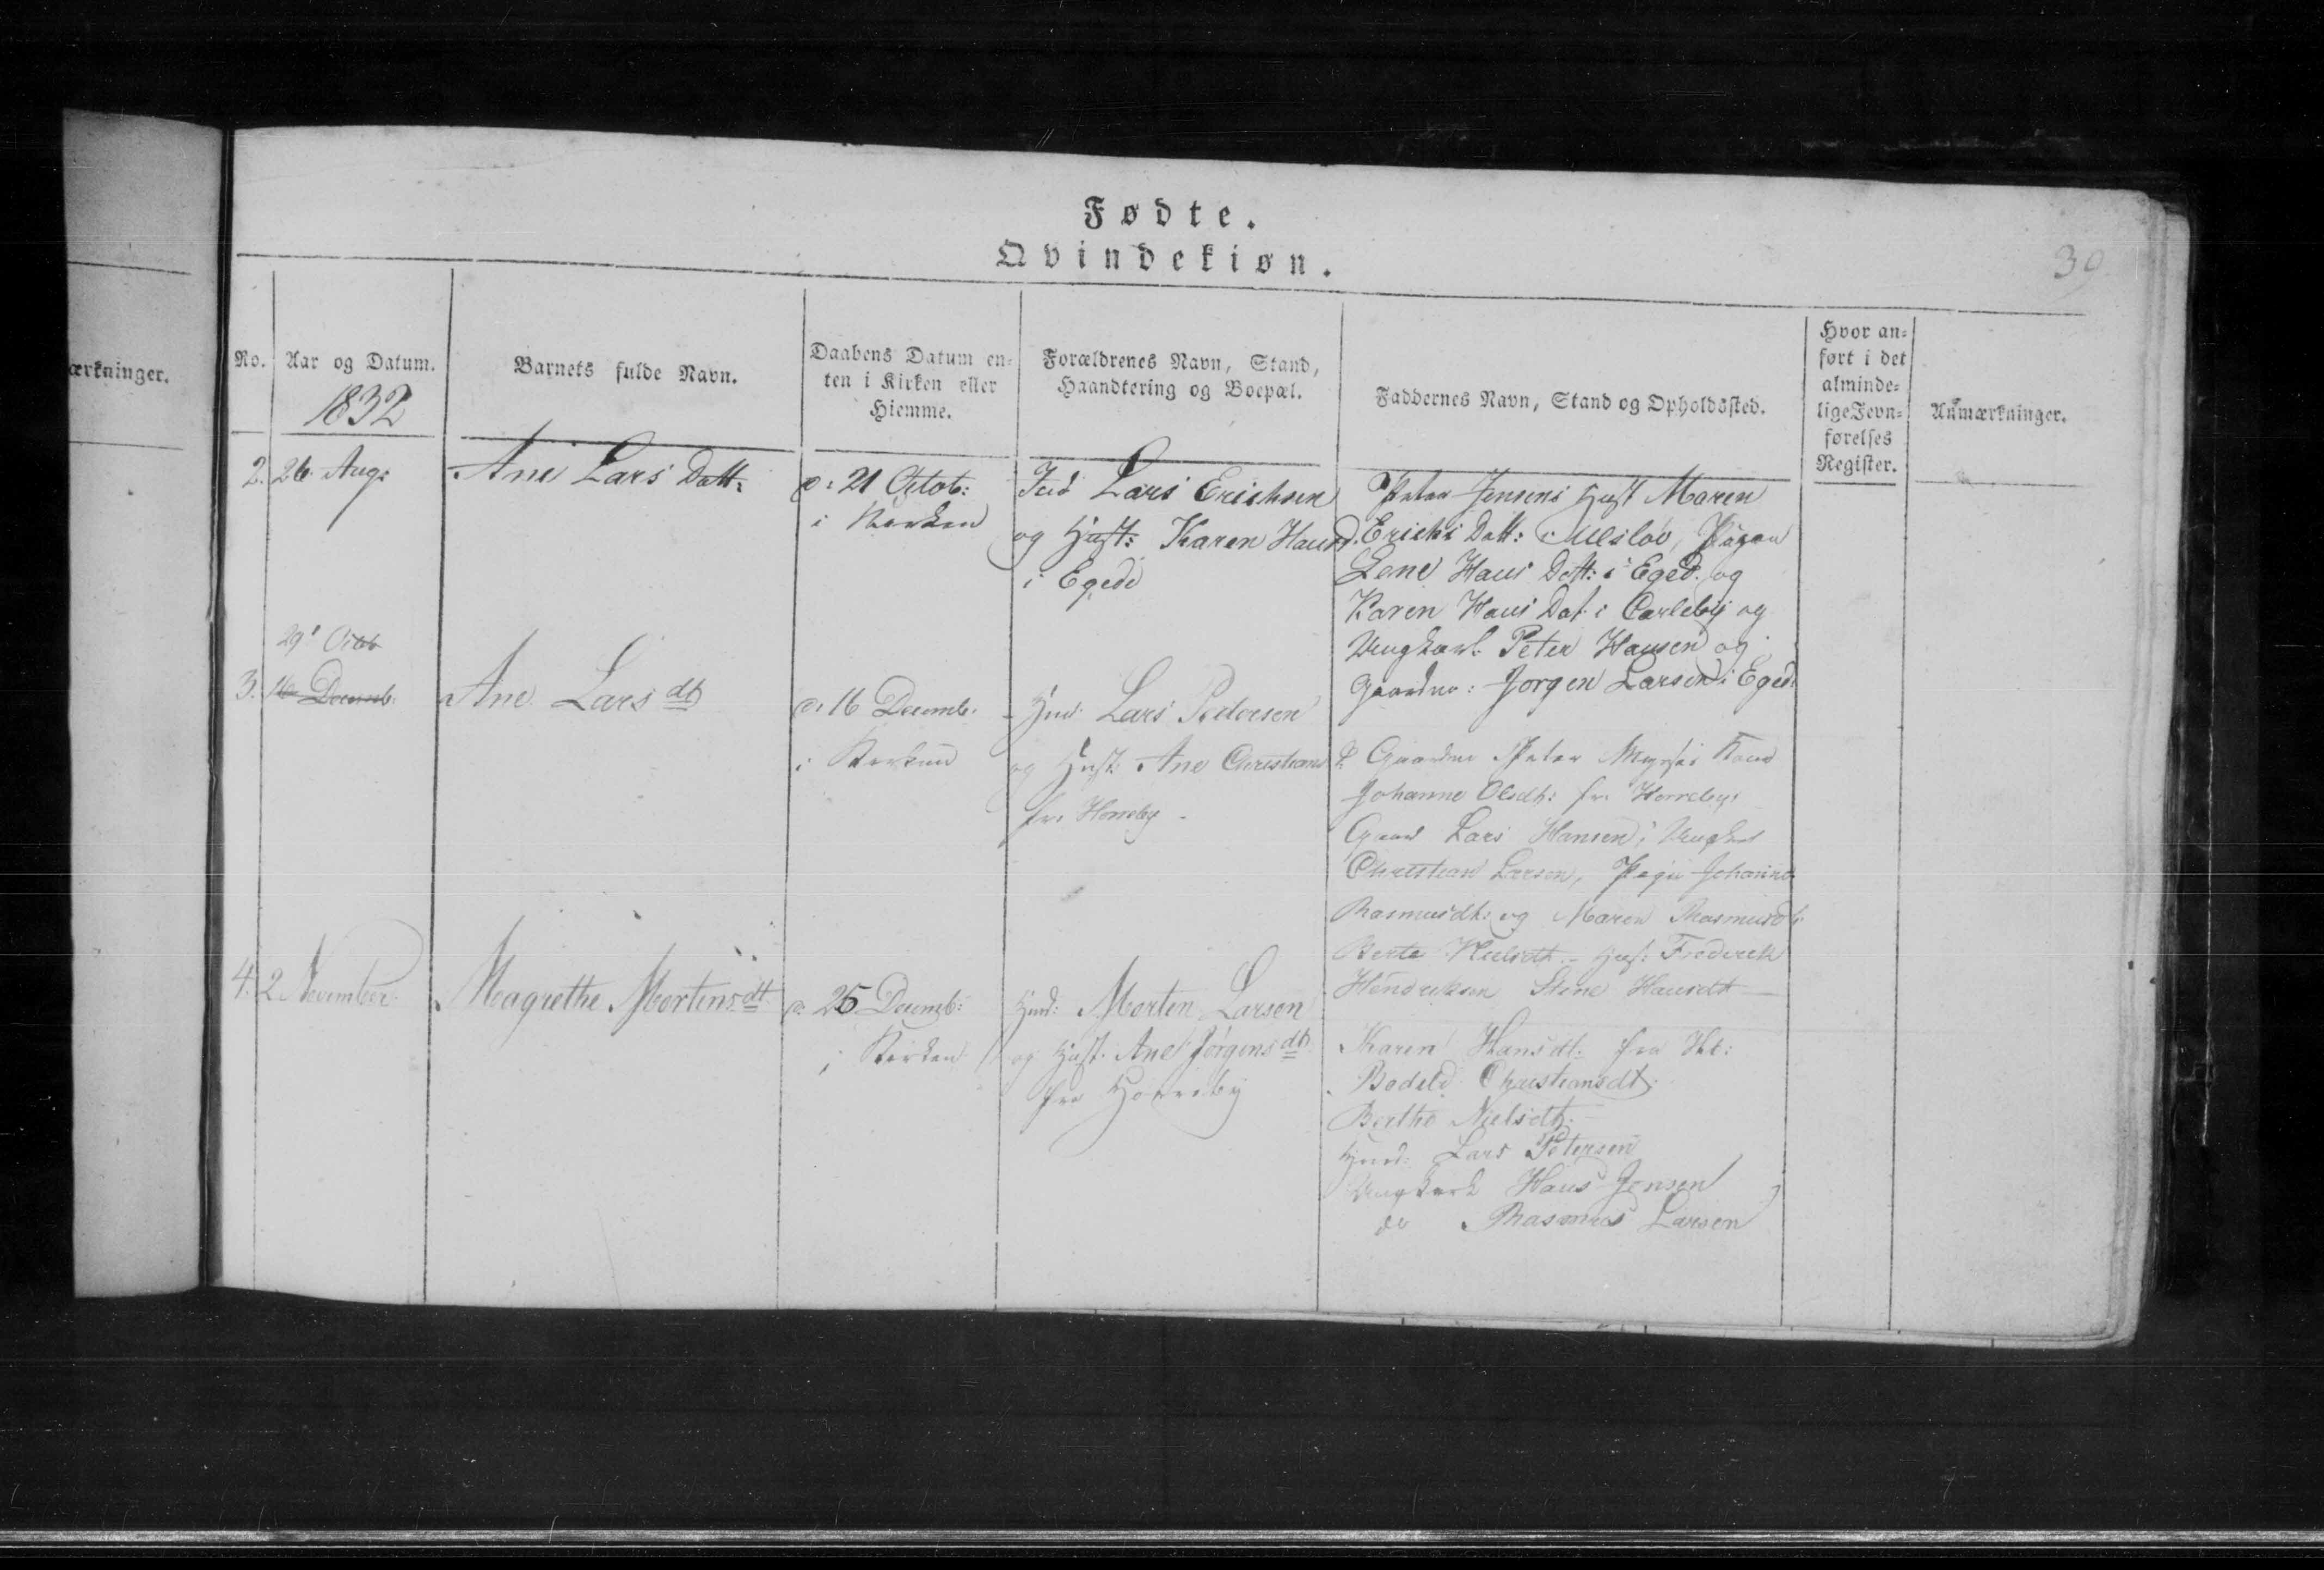 Fødte.
Qvindekiøn.
39
ærkninger.
No.
Aar og Datum.
1832
Barnets fulde Navn.
Daabens Datum en-
ten i Kirken eller
Hiemme.
Forældrenes Navn, Stand,
Haandtering og Boepæl.
Faddernes Navn, Stand og Opholdssted.
Hvor an-
ført i det
alminde-
lige Jevn-
førelses
Register.
Anmærkninger.
2. 26. Aug:
Ane Lars Datt:
d: 21 Octob:
i Kirken
Ind Lars Erichsen
og Hust: Karen Hansd.
i Egede
Peter Jensens Hust Maren
Erichs Datt: i Ulsløv, Pigen
Lene Hans Datt: i Eged. og
Karen Hans Dat i Carleby og
Ungkarl. Peter Hansen og
Gaardm: Jørgen Larsen i Eged:
29' Octob
3. 16 Decemb.
Ane Lars dt
d: 16 Decemb.
i Kirken
Huud. Lars Pedersen
og Hust. Ane Christians dt
fra Horreby
Gaardm Peter Kone
Johanne Olsdt: fr. Horreby,
Gaard Lars Hansen, Ungkarl
Christian Larsen, Pige Johanne
Rasmusdt: og Maren Rasmusdt:
Berte Nielsdt. - Hus: Frederch
Hendriksen Stine Hansdt
4. 2 November.
Magrethe Mortens dt
d. 25 Decemb:
i Kirken
Huud: Morten Larsen
og Hust. Ane Jørgens dt
fra Horreby
Karen Hansdt: fra
Bodild Christiansdt.
Berthe Nielsdt.
Huud: Lars Petersen
Ungkarl Hans Jensen
do Rasmus Larsen